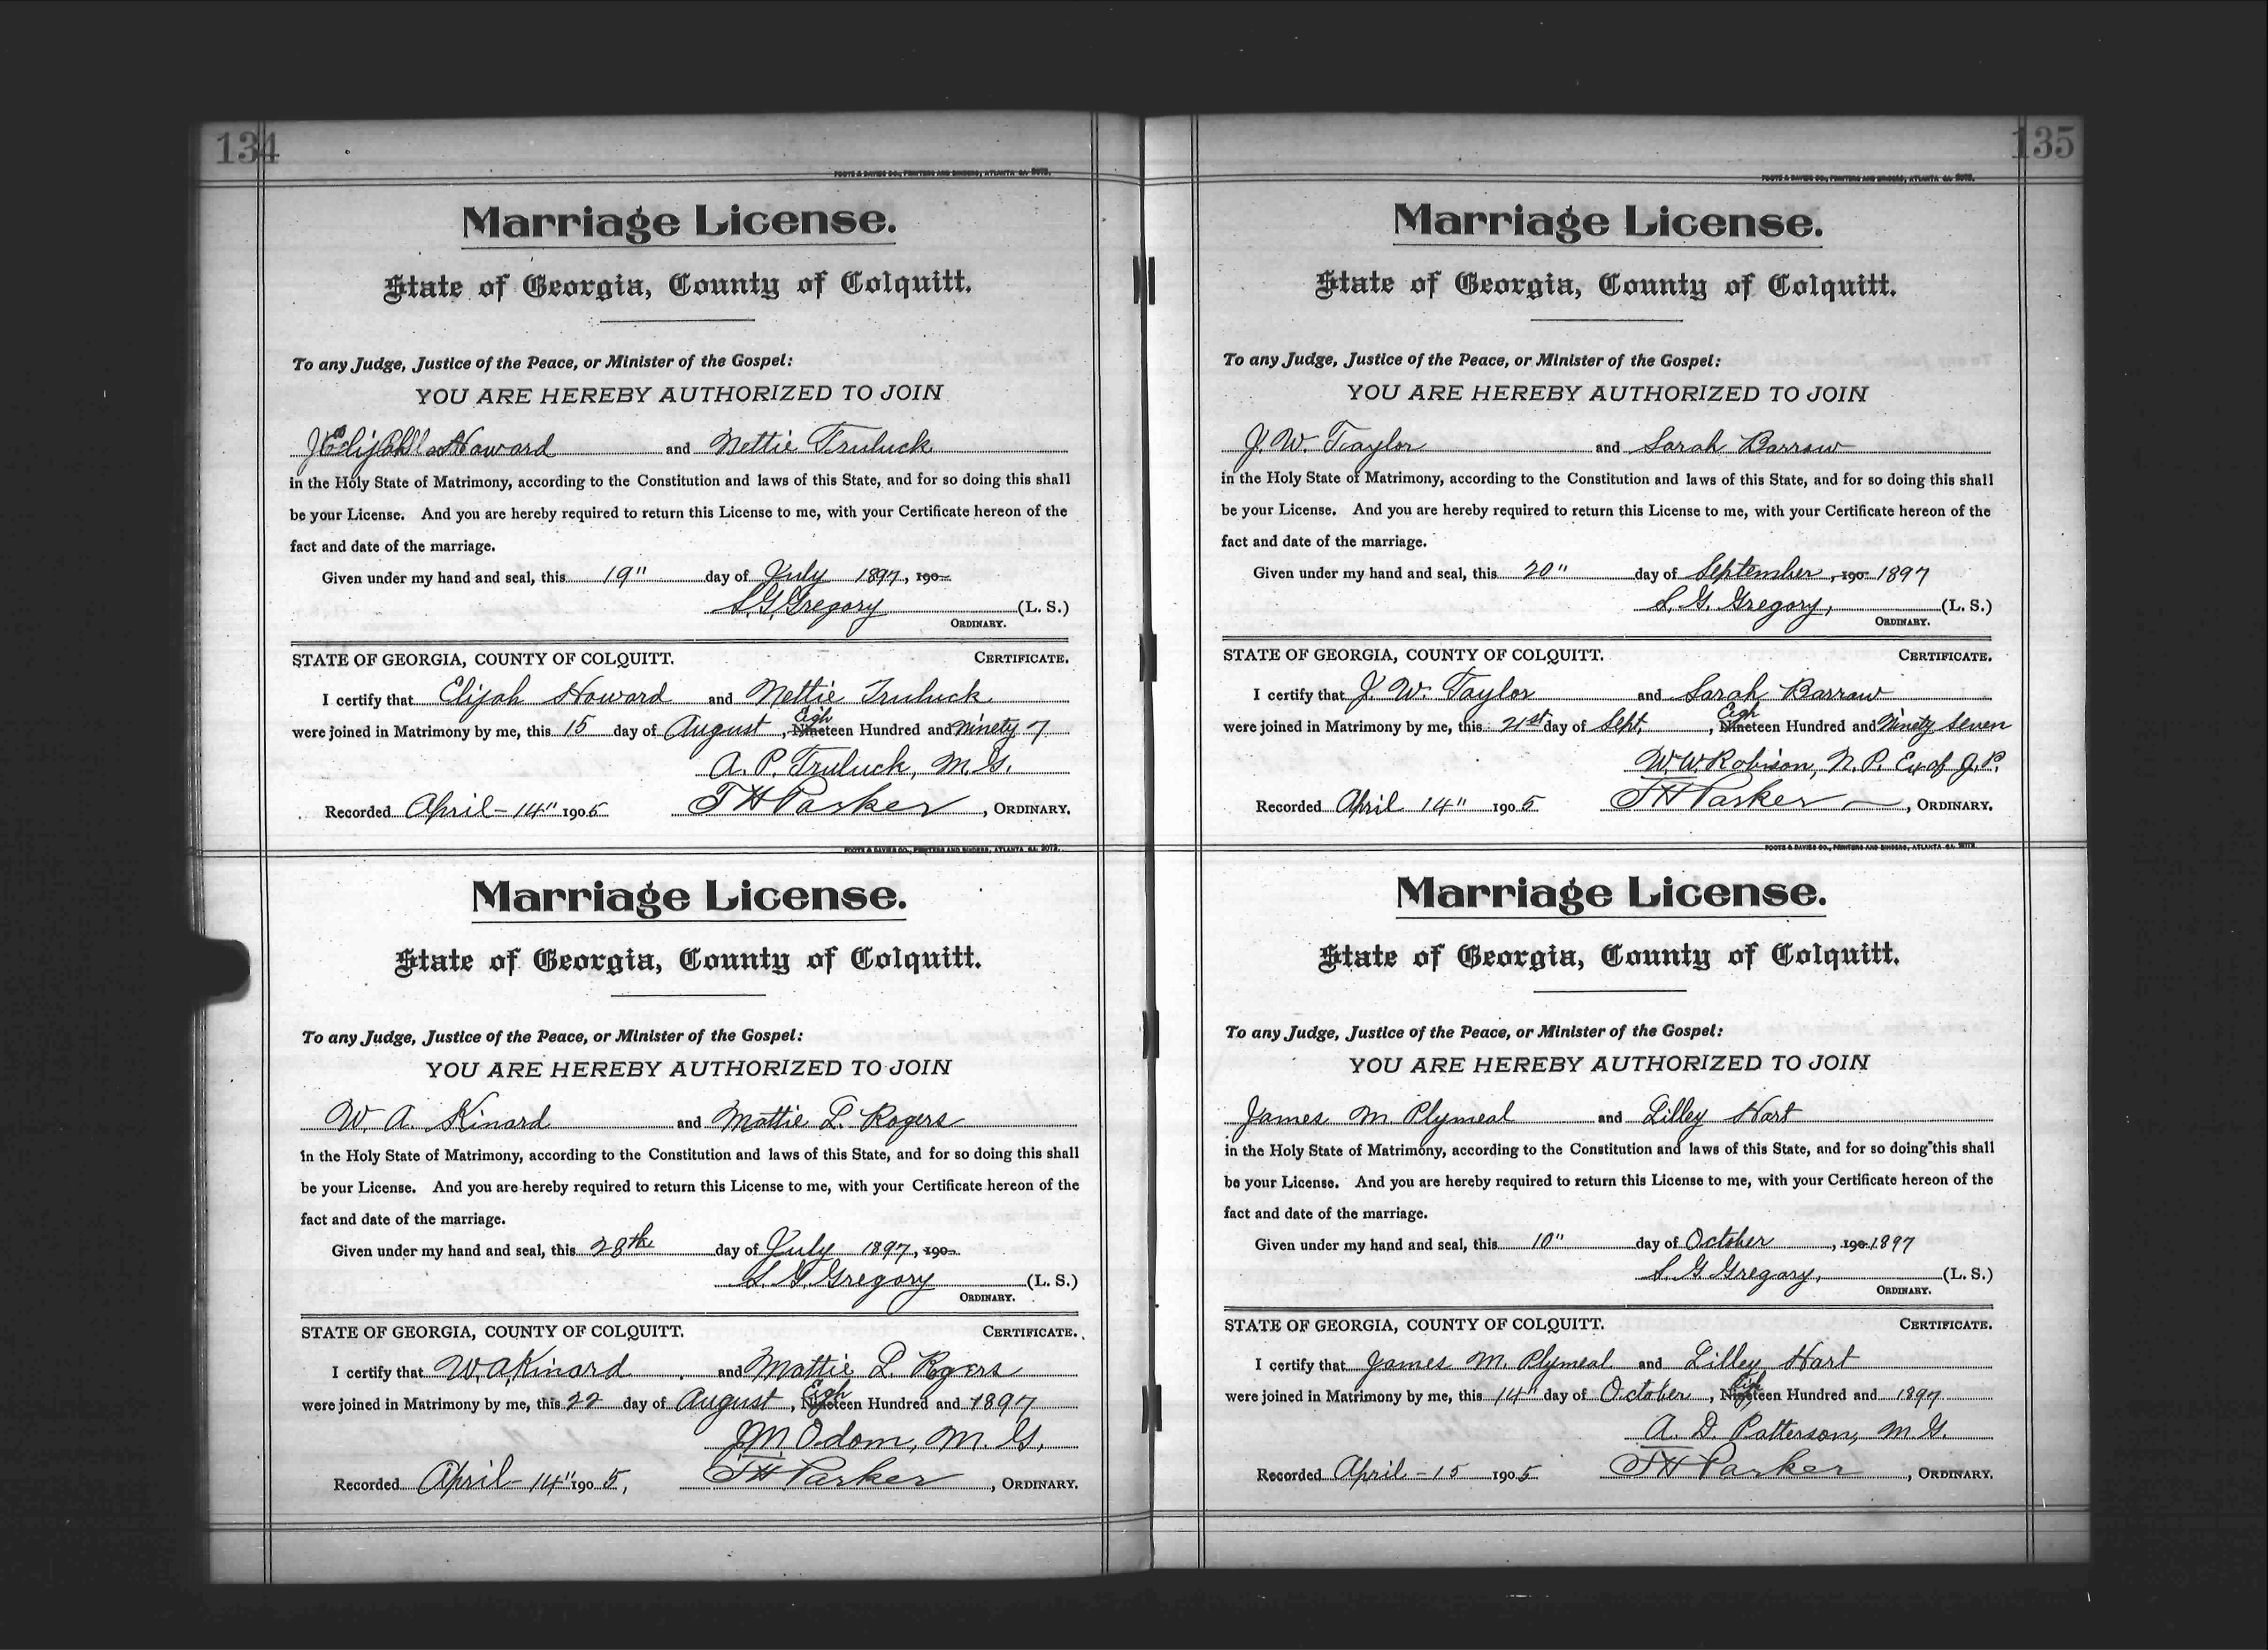 134
FOOTE & DAVIES CO., PRINTERS AND BINDERS, ATLANTA GA.
Marriage License.
State of Georgia, County of Colquitt.
To any Judge, Justice of the Peace, or Minister of the Gospel:
YOU ARE HEREBY AUTHORIZED TO JOIN
Elijah Howard and Nettie Truluck
in the Holy State of Matrimony, according to the Constitution and laws of this State, and for so doing this shall
be your License. And you are hereby required to return this License to me, with your Certificate hereon of the
fact and date of the marriage.
Given under my hand and seal, this 19" day of July 1897, 190
S. G. Gregory (L. S.)
ORDINARY.
STATE OF GEORGIA, COUNTY OF COLQUITT. CERTIFICATE.
I certify that Elijah Howard and Nettie Truluck
Eigh
were joined in Matrimony by me, this 15 day of August, Nineteen Hundred and ninety 7
A. P. Truluck, M. G.
Recorded April - 14" 1905 T H Parker, ORDINARY.
FOOTE & DAVIES CO., PRINTERS AND BINDERS, ATLANTA GA.
Marriage License.
State of Georgia, County of Colquitt.
To any Judge, Justice of the Peace, or Minister of the Gospel:
YOU ARE HEREBY AUTHORIZED TO JOIN
W. A. Kinard and Mattie L. Rogers
in the Holy State of Matrimony, according to the Constitution and laws of this State, and for so doing this shall
be your License. And you are hereby required to return this License to me, with your Certificate hereon of the
fact and date of the marriage.
Given under my hand and seal, this 28th day of July 1897, 190
S. G. Gregory (L. S.)
ORDINARY.
STATE OF GEORGIA, COUNTY OF COLQUITT. CERTIFICATE.
I certify that W. A. Kinard and Mattie L. Rogers
Eigh
were joined in Matrimony by me, this 22 day of August, Nineteen Hundred and 1897
J M Odom, M. G.
Recorded April - 14" 1905, T H Parker, ORDINARY.
135
FOOTE & DAVIES CO., PRINTERS AND BINDERS, ATLANTA GA.
Marriage License.
State of Georgia, County of Colquitt.
To any Judge, Justice of the Peace, or Minister of the Gospel:
YOU ARE HEREBY AUTHORIZED TO JOIN
J. W. Taylor and Sarah Barrow
in the Holy State of Matrimony, according to the Constitution and laws of this State, and for so doing this shall
be your License. And you are hereby required to return this License to me, with your Certificate hereon of the
fact and date of the marriage.
Given under my hand and seal, this 20" day of September, 190 1897
S. G. Gregory, (L. S.)
ORDINARY.
STATE OF GEORGIA, COUNTY OF COLQUITT. CERTIFICATE.
I certify that J. W. Taylor and Sarah Barrow
Eigh
were joined in Matrimony by me, this 21st day of Sept, Nineteen Hundred and Ninety seven
W. W. Robison, N. P. Ex of J. P.
Recorded April 14" 1905 T H Parker, ORDINARY.
FOOTE & DAVIES CO., PRINTERS AND BINDERS, ATLANTA GA.
Marriage License.
State of Georgia, County of Colquitt.
To any Judge, Justice of the Peace, or Minister of the Gospel:
YOU ARE HEREBY AUTHORIZED TO JOIN
James M Plymeal and Lilley Hart
in the Holy State of Matrimony, according to the Constitution and laws of this State, and for so doing this shall
be your License. And you are hereby required to return this License to me, with your Certificate hereon of the
fact and date of the marriage.
Given under my hand and seal, this 10" day of October, 190 1897
S. G Gregory, (L. S.)
ORDINARY.
STATE OF GEORGIA, COUNTY OF COLQUITT. CERTIFICATE.
I certify that James M. Plymeal and Lilley Hart
Eigh
were joined in Matrimony by me, this 14" day of October, Nineteen Hundred and 1897
A. D. Patterson, M. G.
Recorded April - 15 1905 T H Parker, ORDINARY.